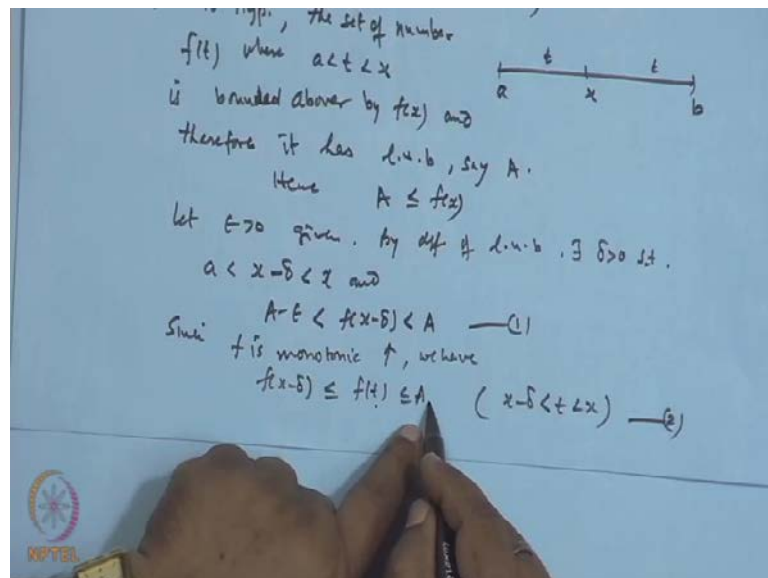 Hyp., the set of number
f(t) where a<t<x
is bounded above by f(x) and
therefore it has l.u.b, say A.
Hence A ≤ f(x)
t t
a x b
Let ϵ>0 given. by def of l.u.b. ∃ δ>0 s.t.
a < x-δ < x and
A-ϵ < f(x-δ) < A —(1)
Since f is monotonic ↑, we have
f(x-δ) ≤ f(t) ≤ A (x-δ<t<x) —(2)
NPTEL